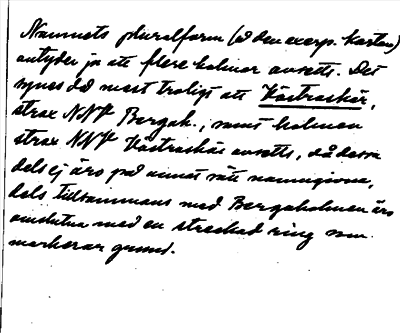 Namnets pluralform (å den excerp. kartan)
antyder ju att flere holmar avsetts. Det
synes då mest troligt att Västraskär,
strax NNV Bergah., samt holmen
strax NNV Västraskär avsetts, då dessa
dels ej äro på annat sätt namngivna,
dels tillsammans med Bergaholmen äro
omslutna med en streckad ring som
markerar grund.